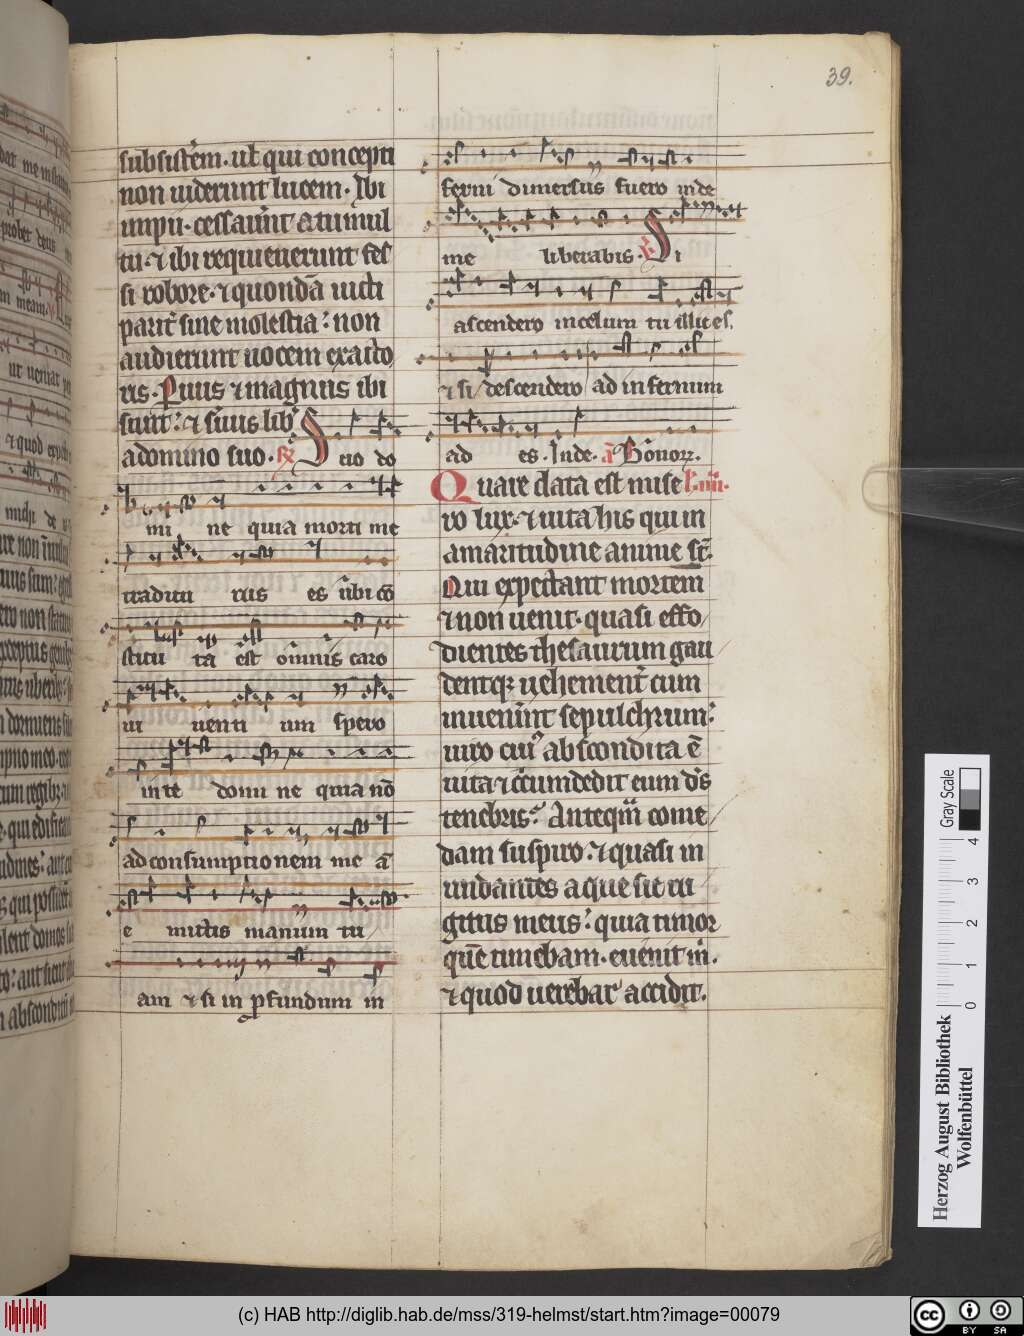 39.
subsistem. ut qui concepti
non uiderunt lucem. Ibi
impii. cessauerunt a tumul
tu. ⁊ ibi requieuerunt fes
si robore. ⁊ quondā uicti
parit̾ sine molestia: non
audierunt uocem exacto
ris. Paruus ⁊ magnus ibi
sunt: ⁊ seruus liber
a domino suo. R̸ Scio do
mi ne quia morti me
traditu rus es ubi cō
stitu ta est omnis caro
ui uenti um spero
in te domi ne quia nō
ad consumptionem me a
e mittis manum tu
am ⁊ si in ꝓfundum in
ferni dimersus fuero inde
me liberabis. V̸ Si
ascendero in celum tu illic es.
⁊ si descendero ad infernum
ad es. Inde. a᷑ Bonorꝝ.
Quare data est mise l᷑. iiii.
ro lux. ⁊ uita his qui in
amaritudine anime st̄.
Qui expectant mortem
⁊ non uenit. quasi effo
dientes thesaurum gau
dentqꝫ uehement̾ cum
inuenerint sepulchrum:
uiro cui᷒ abscondita ē
uita ⁊ c̾cumdedit eum ds̄
tenebris: Anteqͣm come
dam suspiro. ⁊ quasi in
undantes aque sic ru
gitus meus: quia timor
quē timebam. euenit m̾.
⁊ quod uerebar accidit.
Gray Scale
0 1 2 3 4
Herzog August Bibliothek
Wolfenbüttel
(c) HAB http://diglib.hab.de/mss/319-helmst/start.htm?image=00079
cc
BY SA